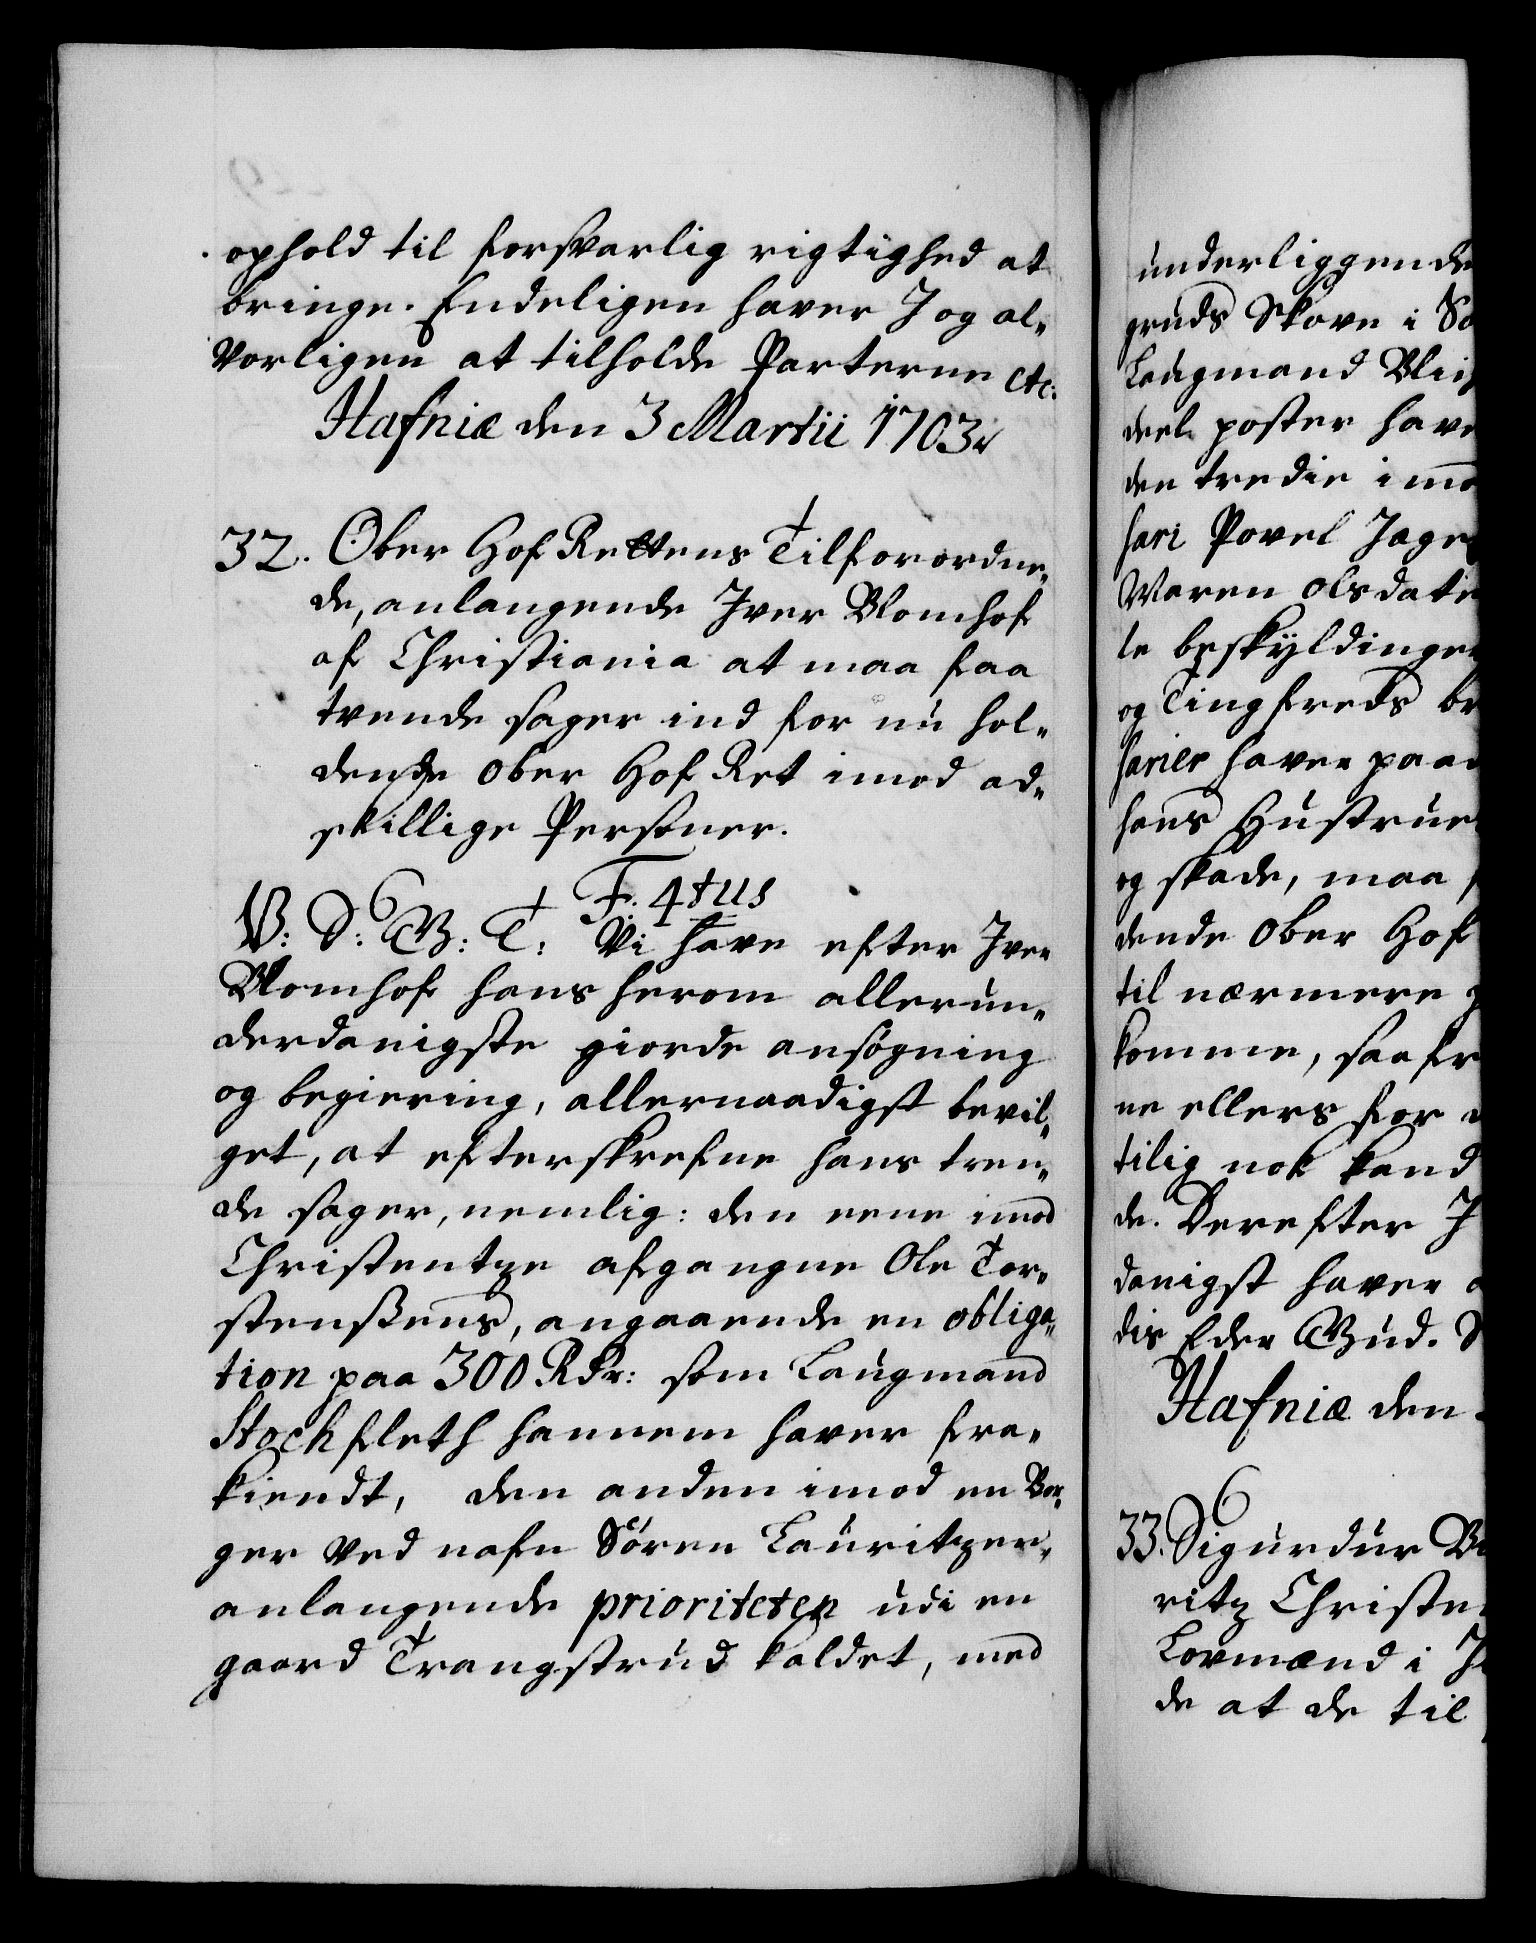 ophold til forsvarlig rigtighed at
bringe. Endeligen haver J og al„
vorligen at tilholde Parterne etc:
Hafniæ den 3 Martii 1703
32. Ober Hof Rettens Tilforordne„
de, anlangende Iver Blomhof
af Christiania at maa faa
trende sager ind for nu hol„
dende Ober Hof Ret imod ad„
skillige Personer.
F. 4tus
V: S: G: T: Vi have efter Iver
Blomhof hans herom allerun„
derdanigste giorde ansøgning
og begiering, allernaadigst bevil„
get, at efterskrefne hans tren„
de sager, nemlig: den eene imod
Christentze afgangne Ole Tor„
stensßens, angaaende en obliga„
tion paa 300 Rdr: som Laugmand
Stockfleth hannem haver fra„
kiendt, den anden imod en Bor„
ger ved nafn Sören Lauritzen„
anlangende prioriteten udi en
gaard Trangstrud kaldet, med
underliggende
gruds Skove i So
Laugmand
deel poster have
den tredie imo
sari Povel Jage
Maren Olsdatte
le beskyldinge
og Tingfreds br
sarier haver paa
hans Hustrue
og skade, maa
dende Ober Hof
til nærmere
komme, saafr
ne ellers for
tilig nok kand
de. Derefter J
danigst haver
dis Eder Gud. S
Hafniæ den
33. Sigurdur B
ritz Christe
Lovmænd i J
de at de til